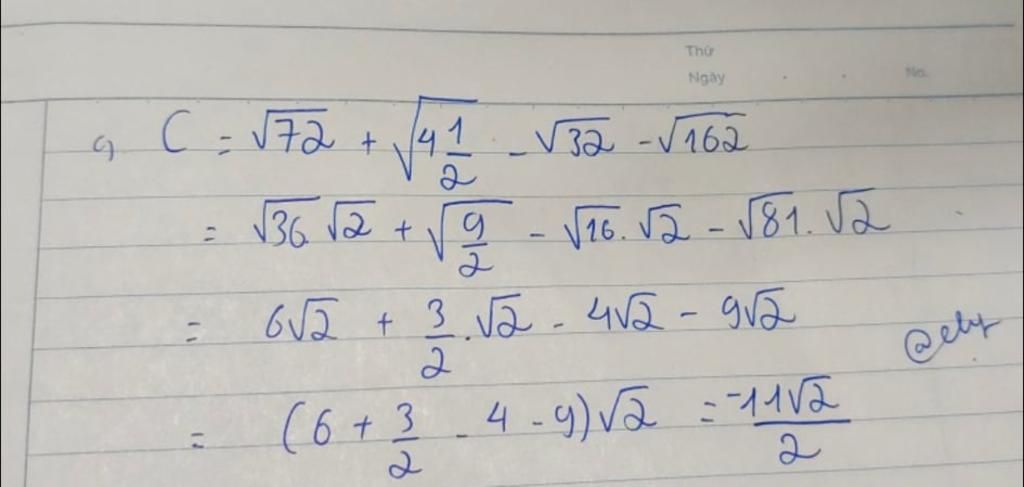 Thứ
Ngày No.
c) C = √72 + √(4 1/2) - √32 - √162
= √36.√2 + √(9/2) - √16.√2 - √81.√2
= 6√2 + 3/2.√2 - 4√2 - 9√2
= (6 + 3/2 - 4 - 9)√2 = -11√2/2